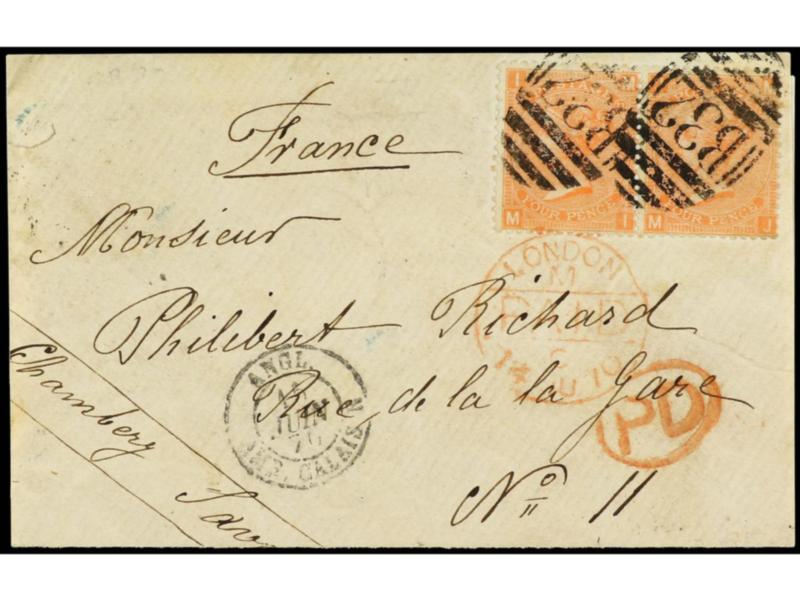 I M
M
B32
B32
FOUR PENCE
M I
FOUR PENCE
M J
France
Monsieur
Philibert Richard
Rue de la la Gare
Nº 11
Chambery
Sav
LONDON
M
PAID
14 JU 70
PD
ANGL.
JUIN
70
AMB. CALAIS